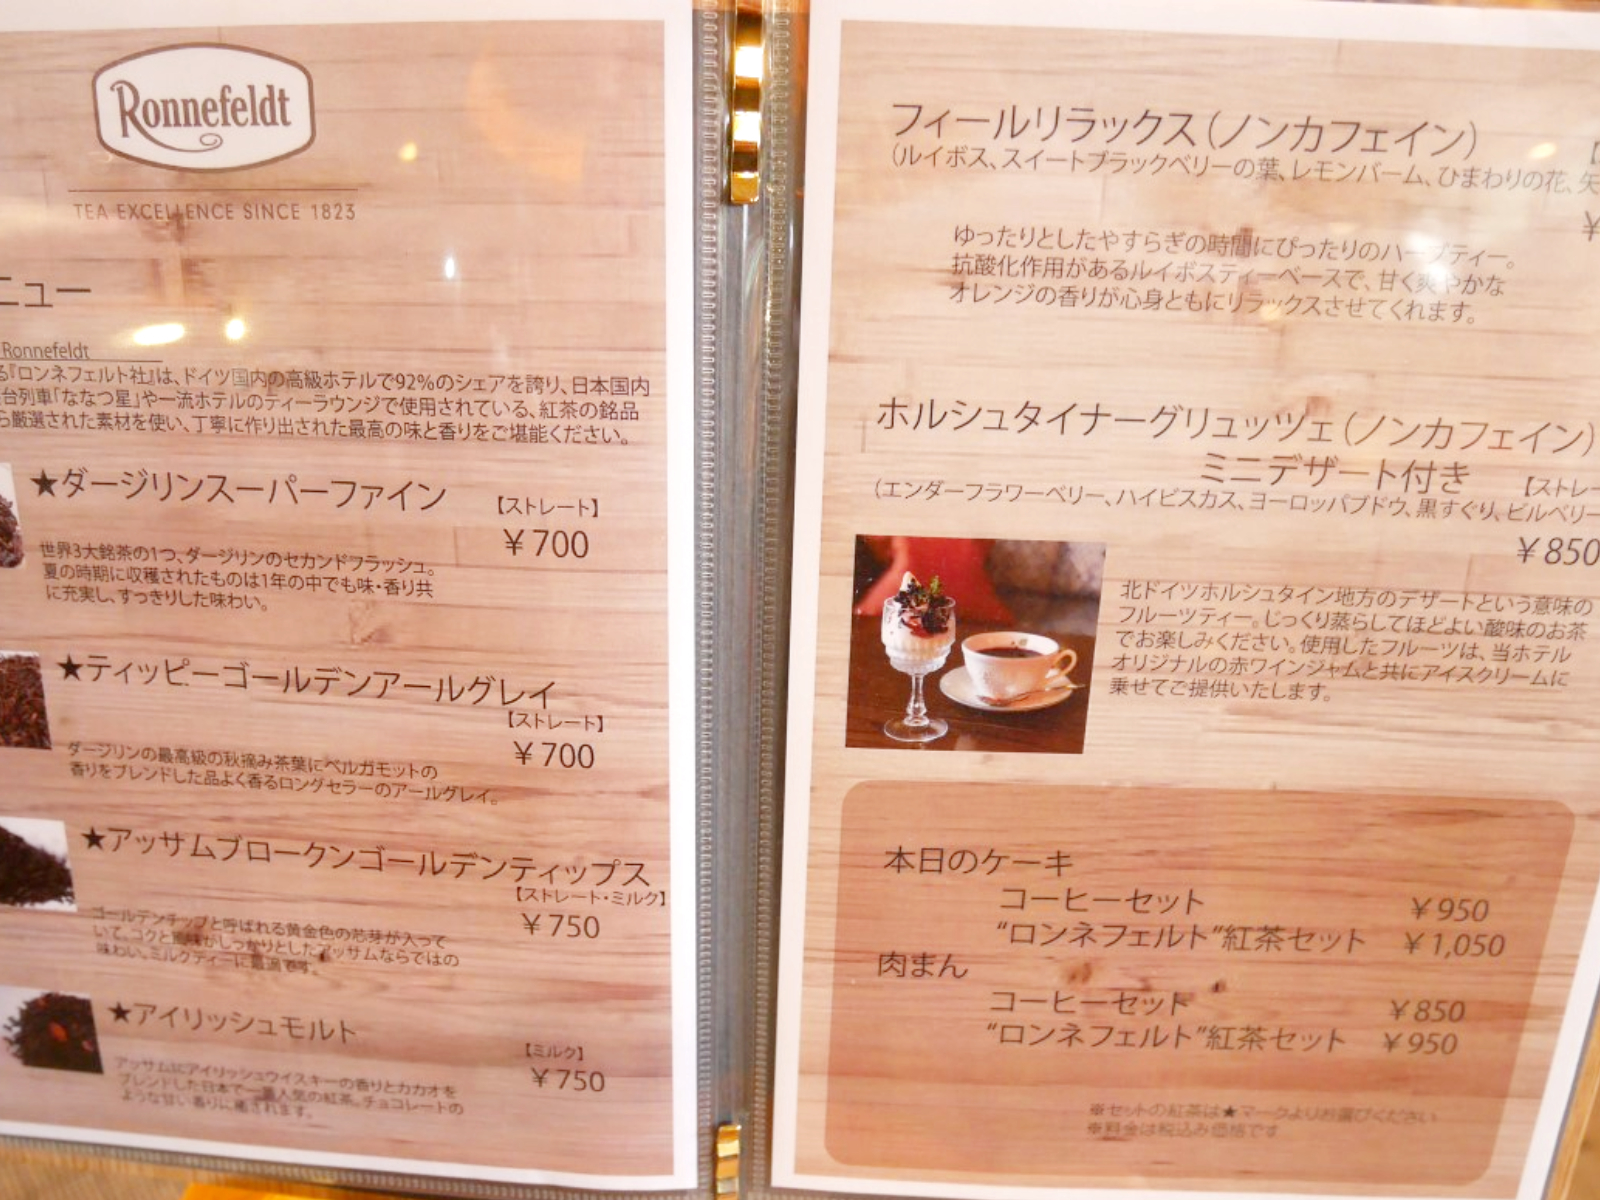 Ronnefeldt
TEA EXCELLENCE SINCE 1823
ニュー
Ronnefeldt
る『ロンネフェルト社』は、ドイツ国内の高級ホテルで92%のシェアを誇り、日本国内
台列車「ななつ星」や一流ホテルのティーラウンジで使用されている、紅茶の銘品
ら厳選された素材を使い、丁寧に作り出された最高の味と香りをご堪能ください。
★ダージリンスーパーファイン 【ストレート】
¥700
世界3大銘茶の1つ、ダージリンのセカンドフラッシュ。
夏の時期に収穫されたものは1年の中でも味・香り共
に充実し、すっきりした味わい。
★ティッピーゴールデンアールグレイ
【ストレート】
¥700
ダージリンの最高級の秋摘み茶葉にベルガモットの
香りをブレンドした品よく香るロングセラーのアールグレイ。
★アッサムブロークンゴールデンティップス
【ストレート・ミルク】
¥750
ゴールデンチップと呼ばれる黄金色の芯芽が入って
いて、コクと風味がしっかりとしたアッサムならではの
味わい。ミルクティーに最適です。
★アイリッシュモルト
【ミルク】
¥750
アッサムにアイリッシュウイスキーの香りとカカオを
ブレンドした日本で一番人気の紅茶。チョコレートの
ような甘い香りに癒されます。
フィールリラックス(ノンカフェイン)
(ルイボス、スイートブラックベリーの葉、レモンバーム、ひまわりの花、矢
¥
ゆったりとしたやすらぎの時間にぴったりのハーブティー。
抗酸化作用があるルイボスティーベースで、甘く爽やかな
オレンジの香りが心身ともにリラックスさせてくれます。
ホルシュタイナーグリュッツェ(ノンカフェイン)
ミニデザート付き 【ストレー
(エンダーフラワーベリー、ハイビスカス、ヨーロッパブドウ、黒すぐり、ビルベリー
¥850
北ドイツホルシュタイン地方のデザートという意味の
フルーツティー。じっくり蒸らしてほどよい酸味のお茶
でお楽しみください。使用したフルーツは、当ホテル
オリジナルの赤ワインジャムと共にアイスクリームに
乗せてご提供いたします。
本日のケーキ
コーヒーセット ¥950
“ロンネフェルト”紅茶セット ¥1,050
肉まん
コーヒーセット ¥850
“ロンネフェルト”紅茶セット ¥950
※セットの紅茶は★マークよりお選びください
※料金は税込み価格です